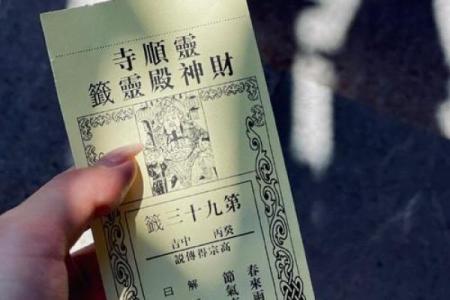 靈順寺
財神殿靈籤
第九十三籤
癸丙 中吉
高宗得傳說
春來雨
節氣
解曰